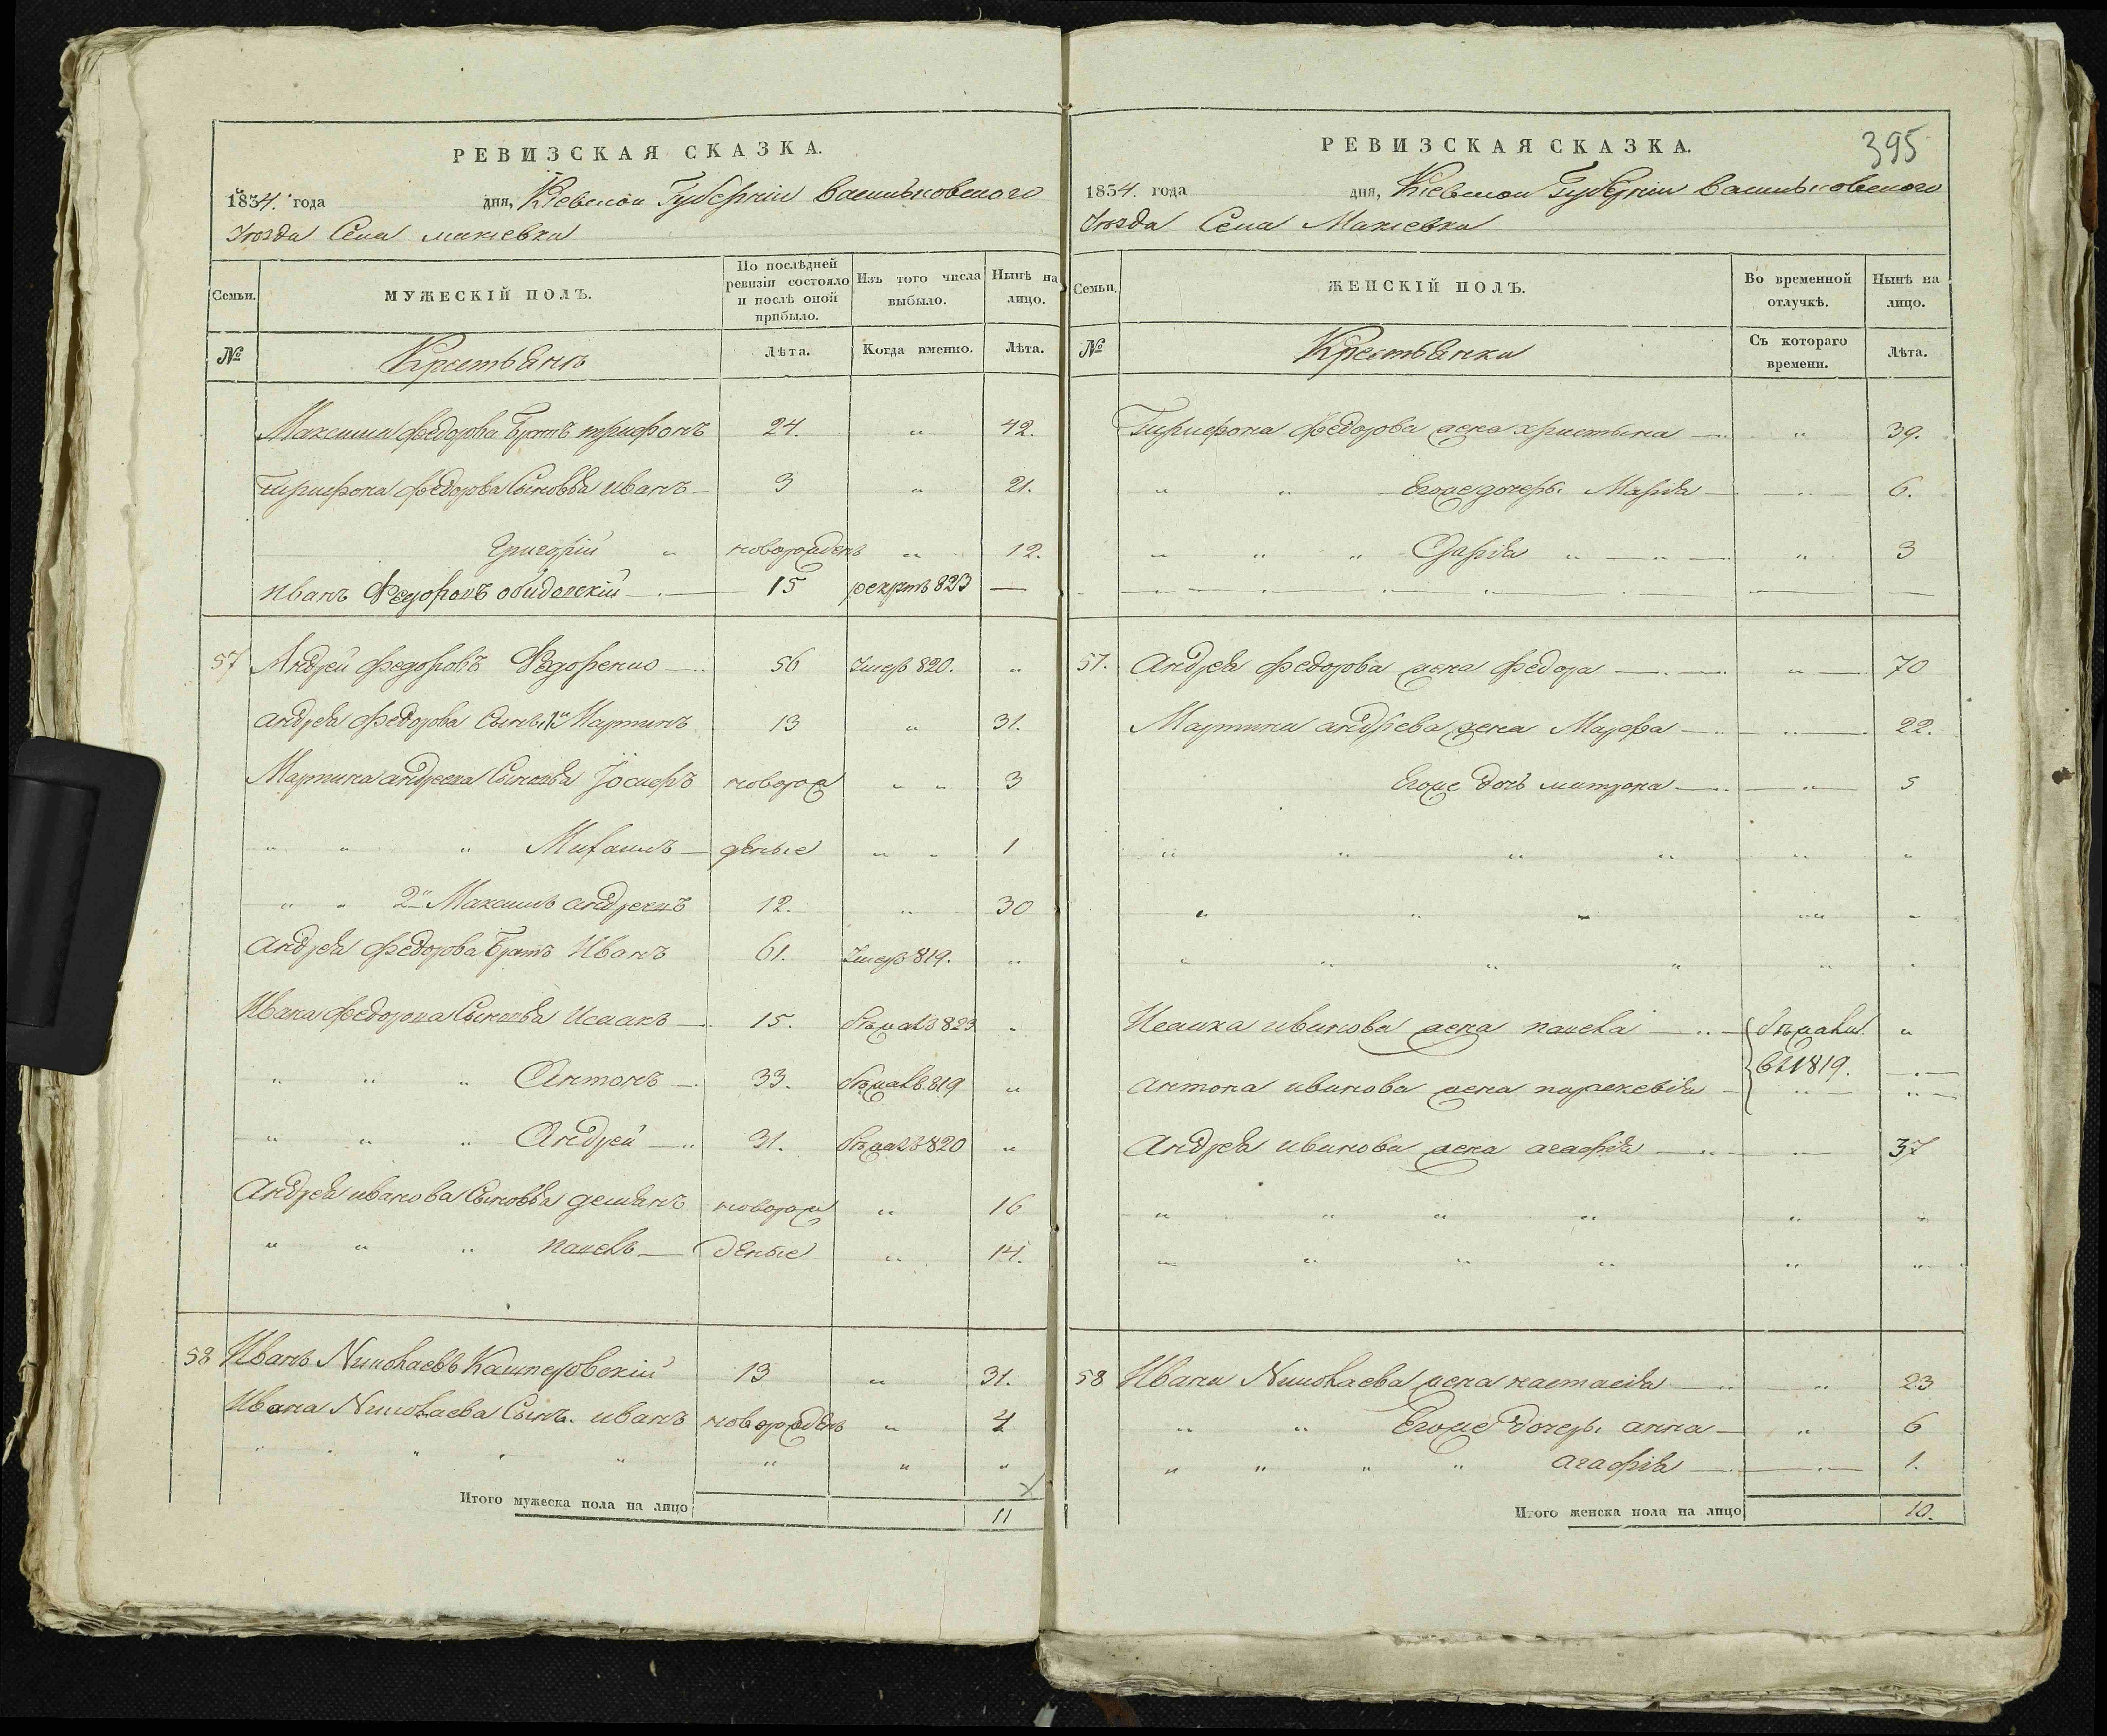 РЕВИЗСКАЯ СКАЗКА.
1834. года дня, Кіевской Губерніи Васильковского
Уѣзда Села макіевки
Семьи. МУЖЕСКІЙ ПОЛЪ. По послѣдней ревизіи состояло и послѣ оной прибыло. Изъ того числа выбыло. Нынѣ на лицо.
№ Крестьянъ Лѣта. Когда именно. Лѣта.
Максима федорова Братъ трифонъ 24. " 42.
Трифона федорова Сыновья иванъ 3 " 21.
Григорій " новорожденъ " 12.
иванъ Федоровъ 15 рекрутъ 823 —
57 Андрей федоровъ Федоренко 56 Умеръ 820. "
андрея федорова Сынъ 1й Мартинъ 13 " 31.
Мартина андреева Сыновья Іосифъ новорож " " 3
" " " Михаилъ деные " " 1
" " 2й Максимъ андреевъ 12. " 30
андрея федорова Братъ Иванъ 61. Умеръ 819. "
Ивана федорова Сыновья Исаакъ 15. бѣжалъ 823 "
" " " Антонъ 33. бѣжалъ 819 "
" " " Андрей 31. бѣжалъ 820 "
Андрея иванова Сыновья демянъ новорож " 16
" " " павелъ деные " 14.
58 Иванъ Николаевъ Кашперовскій 13 " 31.
Ивана Николаева Сынъ. иванъ новорожденъ " 4
" " " " " " " "
Итого мужеска пола на лицо 11
395
РЕВИЗСКАЯ СКАЗКА.
1834. года дня, Кіевской Губерніи Васильковского
Уѣзда Села Макіевки
Семьи. ЖЕНСКІЙ ПОЛЪ. Во временной отлучкѣ. Нынѣ на лицо.
№ Крестьянки Съ котораго времени. Лѣта.
Трифона федорова жена христина " 39.
" " Егоже дочерь. Марія " 6.
" " " Дарія " " " 3
57. андрея федорова жена федора " 70
Мартина андреева жена Марфа " 22.
Егоже дочь митрона " 5
" " " " " "
" " " " "
" " " " " "
Исаака иванова жена павела бѣжали "
въ 1819.
антона иванова жена параскевія "
Андрея иванова жена агафія " 37
" " " " " "
" " " " " "
58 Ивана Николаева жена настасія " 23
" " Егоже дочерь. анна " 6
" " " " агафія " 1.
Итого женска пола на лицо 10.